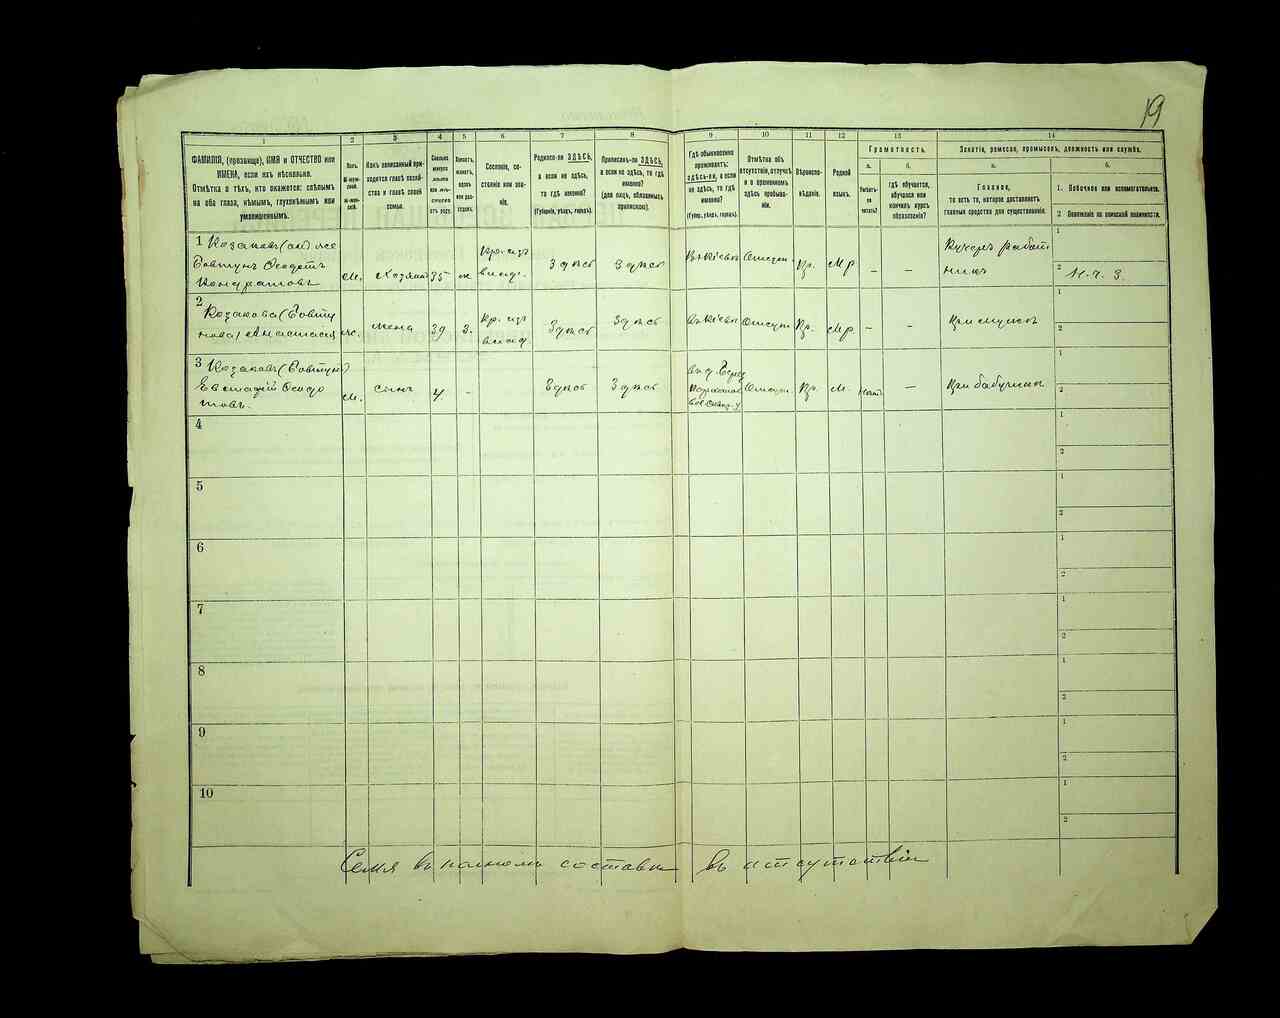 19
1 2 3 4 5 6 7 8 9 10 11 12 13 14
ФАМИЛІЯ, (прозвище), ИМЯ и ОТЧЕСТВО или
ИМЕНА, если ихъ нѣсколько.
Отмѣтка о тѣхъ, кто окажется: слѣпымъ
на оба глаза, нѣмымъ, глухонѣмымъ или
умалишеннымъ.
Полъ.
М-муж-
ской.
Ж-жен-
скій.
Какъ записанный при-
ходится главѣ хозяй-
ства и главѣ своей
семьи.
Сколько
минуло
лѣтъ
или мѣ-
сяцевъ
отъ роду.
Холостъ,
женатъ,
вдовъ
или раз-
веденъ.
Сословіе, со-
стояніе или зва-
ніе.
Родился-ли ЗДѢСЬ,
а если не здѣсь,
то гдѣ именно?
(Губернія, уѣздъ, городъ).
Приписанъ-ли ЗДѢСЬ,
а если не здѣсь, то гдѣ
именно?
(для лицъ, обязанныхъ
припискою).
Гдѣ обыкновенно
проживаетъ:
здѣсь-ли, а если
не здѣсь, то гдѣ
именно?
(Губер., уѣздъ, городъ).
Отмѣтка объ
отсутствіи, отлучкѣ
и о временномъ
здѣсь пребыва-
ніи.
Вѣроиспо-
вѣданіе.
Родной
языкъ.
Грамотность.
а.
Умѣетъ-
ли
читать?
б.
Гдѣ обучается,
обучался или
кончилъ курсъ
образованія?
Занятіе, ремесло, промыселъ, должность или служба.
а.
Главное,
то есть то, которое доставляетъ
главныя средства для существованія.
б.
1. Побочное или вспомогательное.
2 Положеніе по воинской повинности.
1 Козаковъ (он) же
Товтунъ Феодотъ
Кондратовъ
м. Хозяинъ 35 ж Кр. изъ
влад. Здѣсь Здѣсь Отсут. Пр. Мр — —
Кухар. работ
никъ
1
2 Н.ч. 3.
2 Козакова (Товту
нова) Анастасія
жена 39 з. Кр. изъ
влад. Здѣсь Здѣсь Отсут. Пр. Мр — — При мужѣ
1
2
3 Козаковъ (Товтун)
Евстафій Феодо
товъ.
м. сынъ 4 - Здѣсь Здѣсь Отсут. Пр. М. — При бабушкѣ
1
2
4
1
2
5
1
2
6
1
2
7
1
2
8
1
2
9
1
2
10
1
2
Семя въ полномъ составѣ въ отсутствіи